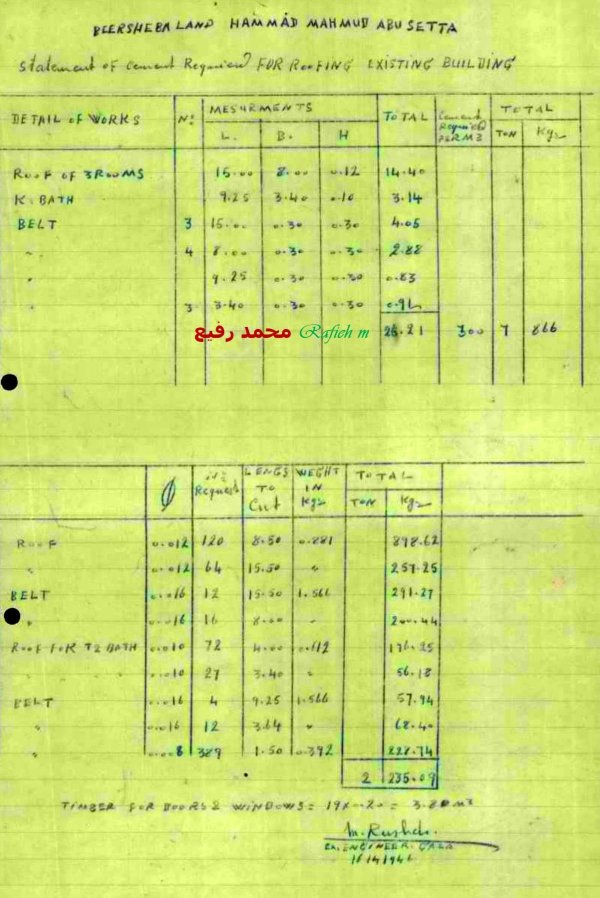 BEERSHEBA LAND HAMMAD MAHMUD ABU SETTA
Statement of Cement Required FOR ROOFING EXISTING BUILDING
DETAIL OF WORKS No MESURMENTS TOTAL Cement Required PER M3 TOTAL
L. B. H TON Kgs
ROOF OF 3 ROOMS 15.00 8.00 0.12 14.40
K. BATH 9.25 3.40 0.10 3.14
BELT 3 15.00 0.30 0.30 4.05
" 4 8.00 0.30 0.30 2.88
" 9.25 0.30 0.30 0.83
" 3 3.40 0.30 0.30 0.92
محمد رفيع Rafieh m 26.21 300 7 866
Ø No Request LENGS TO Cut WEGHT IN Kgs TOTAL
TON Kgs
ROOF 0.012 120 8.50 0.881 898.62
" 0.012 64 15.50 " 257.25
BELT 0.016 12 15.50 1.566 291.27
" 0.016 16 8.00 " 200.44
ROOF FOR T2 BATH 0.010 72 4.00 0.612 176.25
" " 0.010 27 3.40 " 56.18
BELT 0.016 4 9.25 1.566 57.94
" 0.016 12 3.64 " 68.40
" 0.008 389 1.50 0.392 228.74
2 235.09
TIMBER FOR DOORS & WINDOWS = 19 x 0.20 = 3.80 M3
M. Rushdi.
EX. ENGINEER. GAZA